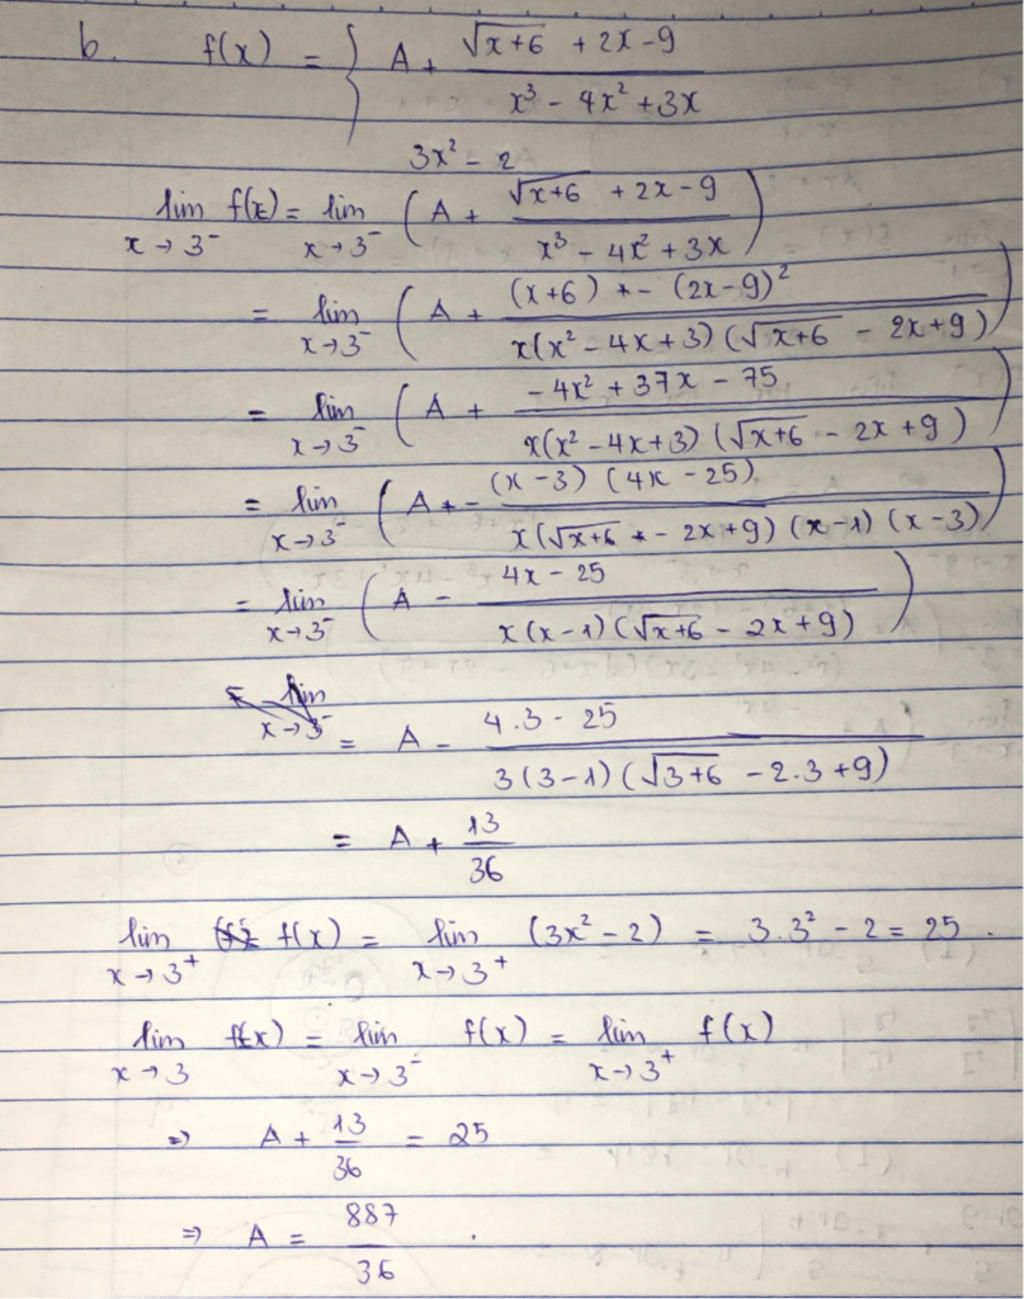 b. f(x) = { A + (√(x+6) + 2x - 9) / (x³ - 4x² + 3x)
3x² - 2
lim x→3⁻ f(x) = lim x→3⁻ ( A + (√(x+6) + 2x - 9) / (x³ - 4x² + 3x) )
= lim x→3⁻ ( A + ((x+6) - (2x-9)²) / (x(x² - 4x + 3)(√(x+6) - 2x + 9)) )
= lim x→3⁻ ( A + (-4x² + 37x - 75) / (x(x² - 4x + 3)(√(x+6) - 2x + 9)) )
= lim x→3⁻ ( A + - ((x-3)(4x - 25)) / (x(√(x+6) - 2x + 9)(x-1)(x-3)) )
= lim x→3⁻ ( A - (4x - 25) / (x(x-1)(√(x+6) - 2x + 9)) )
= A - (4.3 - 25) / (3(3-1)(√(3+6) - 2.3 + 9))
= A + 13/36
lim x→3⁺ f(x) = lim x→3⁺ (3x² - 2) = 3.3² - 2 = 25.
lim x→3 f(x) = lim x→3⁻ f(x) = lim x→3⁺ f(x)
⇒ A + 13/36 = 25
⇒ A = 887/36 .